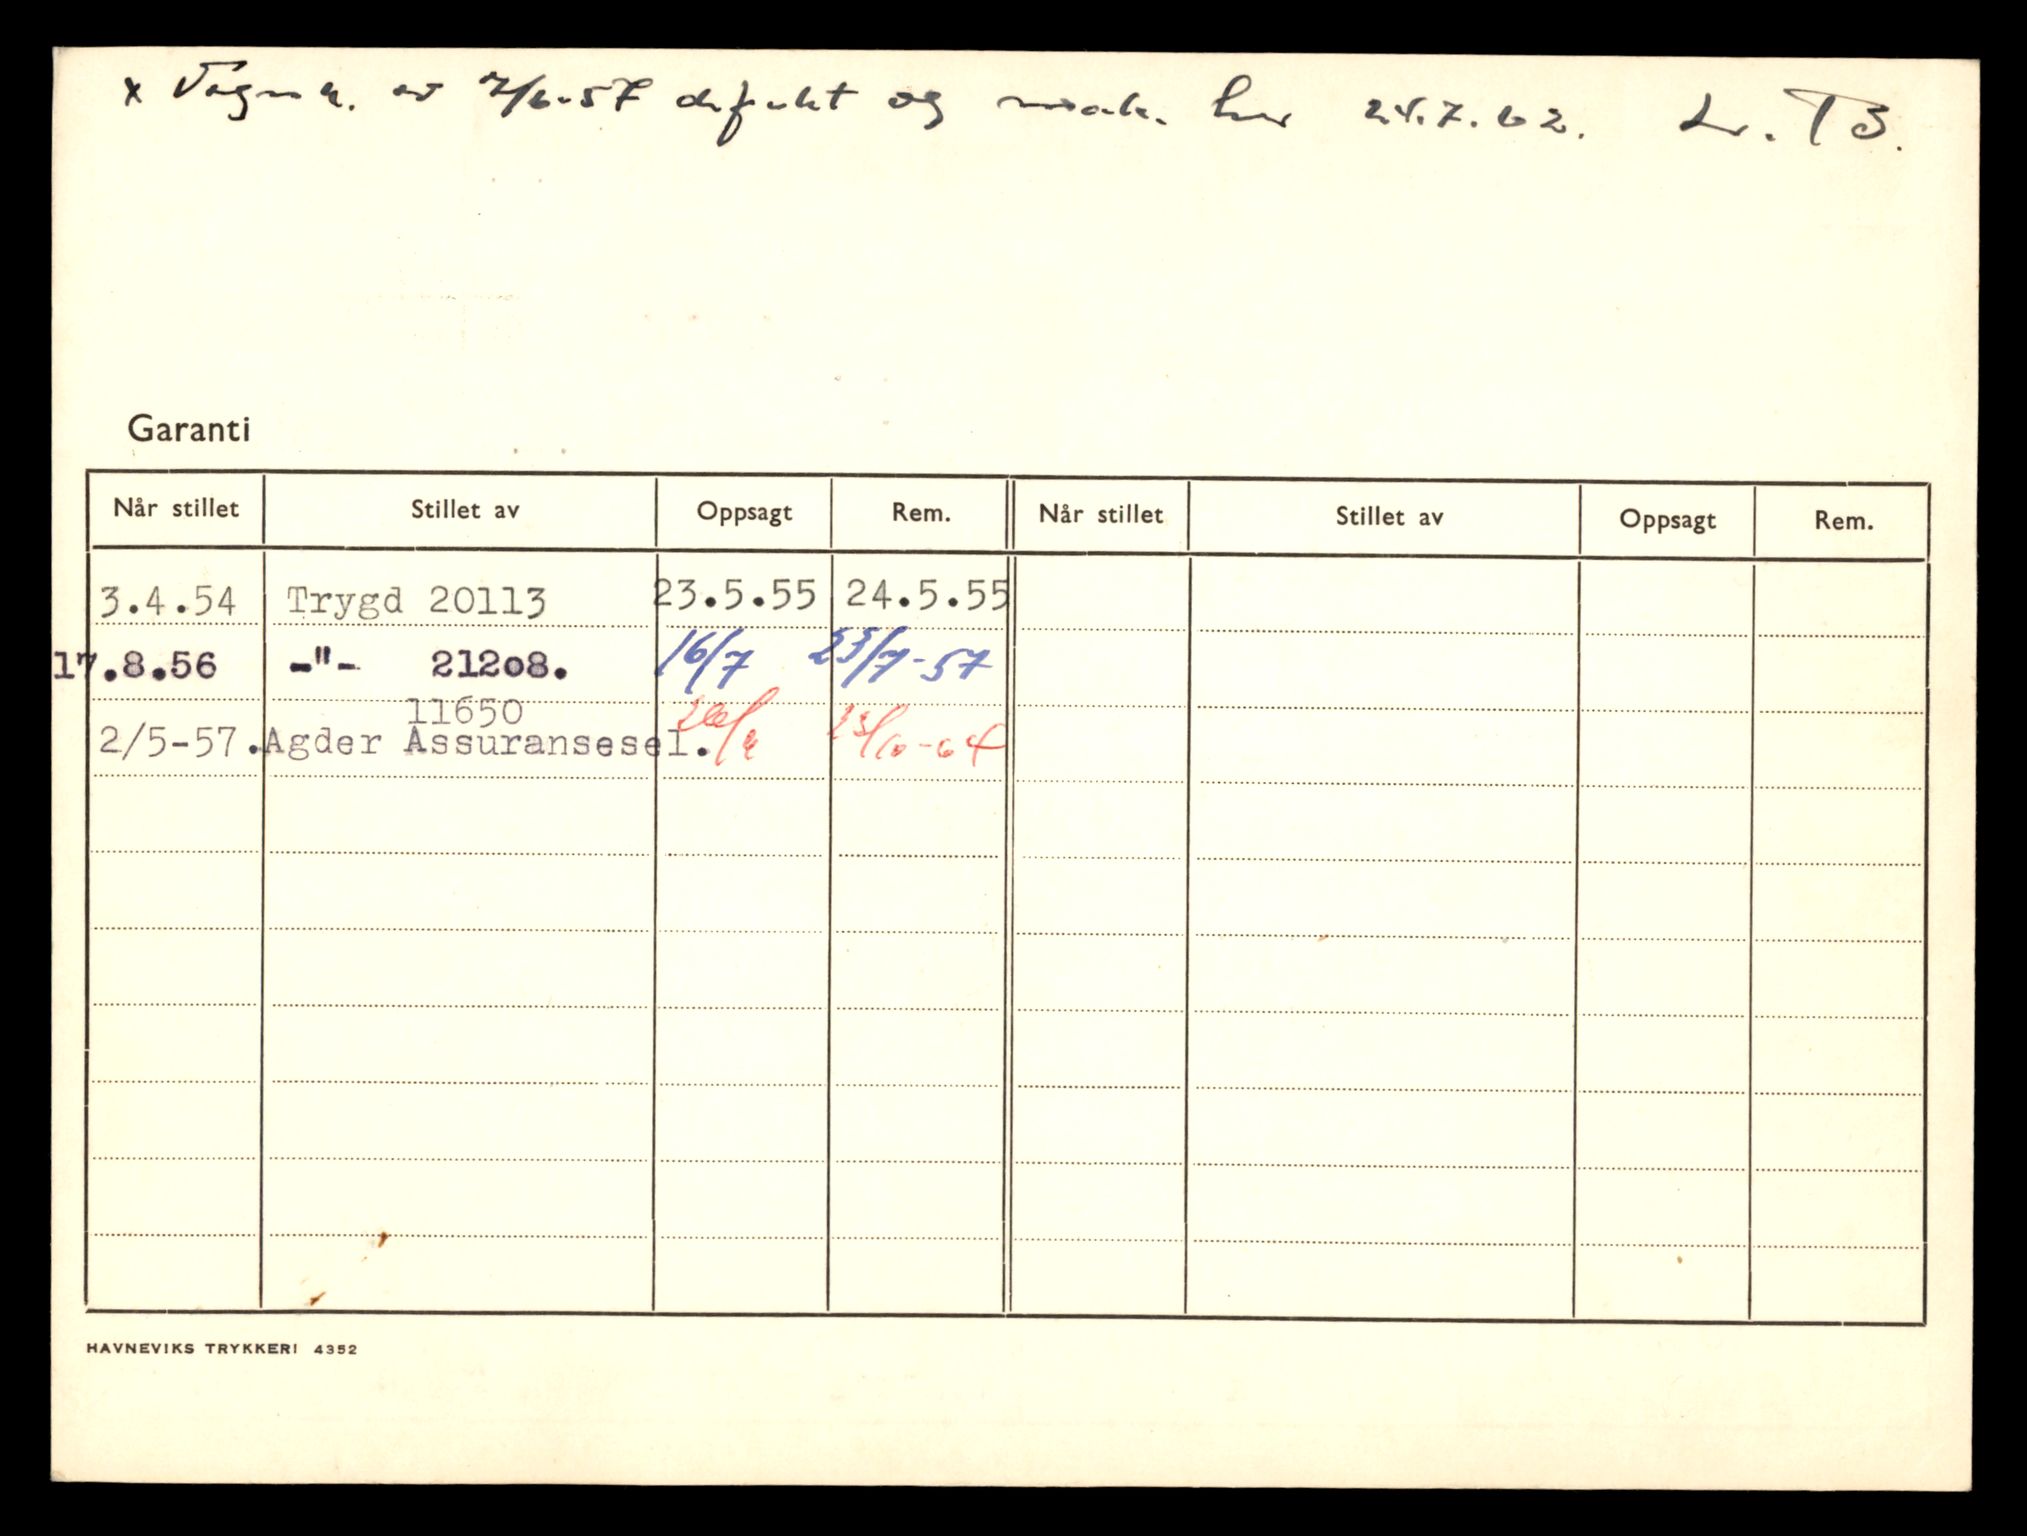 x Vognk. av 7/6-57 defekt og mak. her 24.7.62. Lv. TB.
Garanti
Når stillet Stillet av Oppsagt Rem. Når stillet Stillet av Oppsagt Rem.
3.4.54 Trygd 20113 23.5.55 24.5.55
17.8.56 -"- 21208. 16/7 23/7-57
11650
2/5-57. Agder Assuransesel. 23/10-64
HAVNEVIKS TRYKKERI 4352